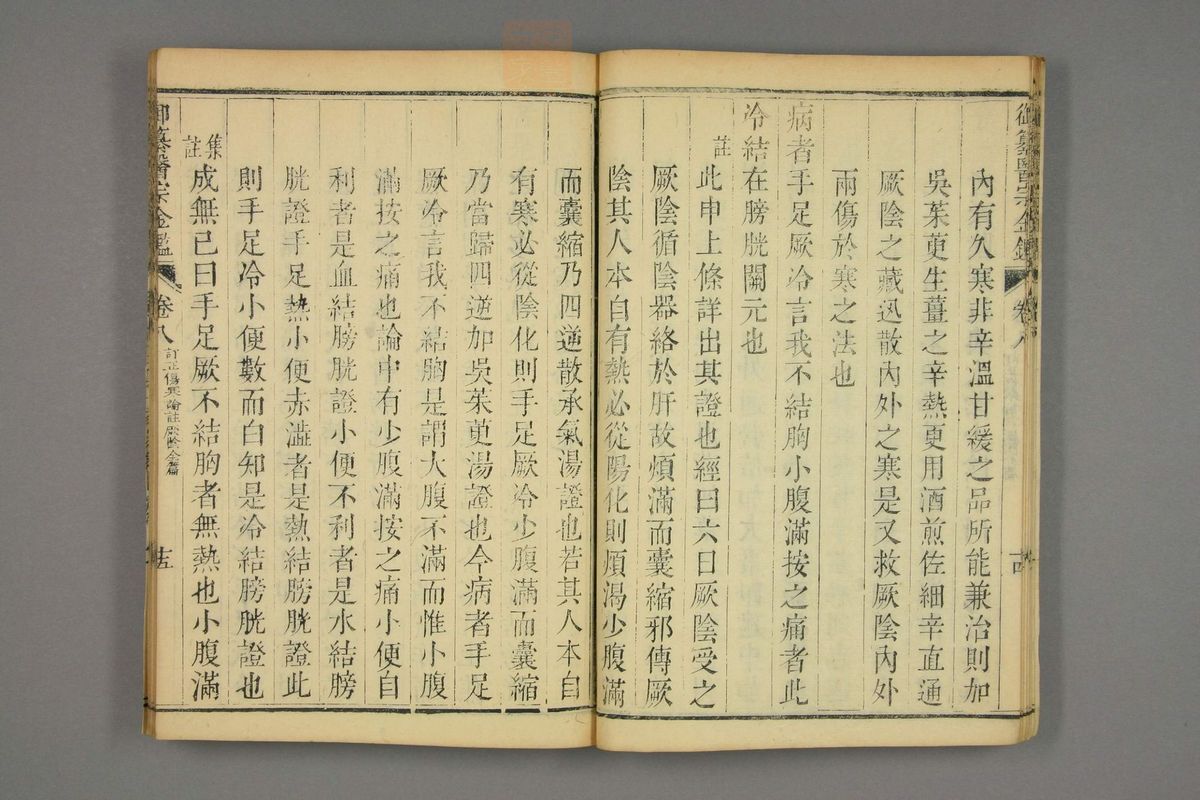 御纂醫宗金鑑 卷八 十四
內有久寒非辛溫甘緩之品所能兼治則加
吳茱萸生薑之辛熱更用酒煎佐細辛直通
厥陰之藏迅散內外之寒是又救厥陰內外
兩傷於寒之法也
病者手足厥冷言我不結胸小腹滿按之痛者此
冷結在膀胱關元也
註此申上條詳出其證也經曰六日厥陰受之
厥陰循陰器絡於肝故煩滿而囊縮邪傳厥
陰其人本自有熱必從陽化則煩渴少腹滿
而囊縮乃四逆散承氣湯證也若其人本自
有寒必從陰化則手足厥冷少腹滿而囊縮
乃當歸四逆加吳茱萸湯證也今病者手足
厥冷言我不結胸是謂大腹不滿而惟小腹
滿按之痛也論中有少腹滿按之痛小便自
利者是血結膀胱證小便不利者是水結膀
胱證手足熱小便赤澁者是熱結膀胱證此
則手足冷小便數而白知是冷結膀胱證也
集註成無已曰手足厥不結胸者無熱也小腹滿
御纂醫宗金鑑 卷八 訂正傷寒論註厥陰全篇 十五